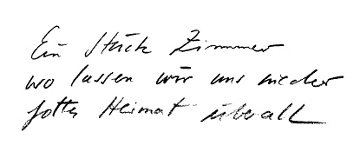 Ein Stück Zimmer
wo lassen wir uns nieder
Heimat überall